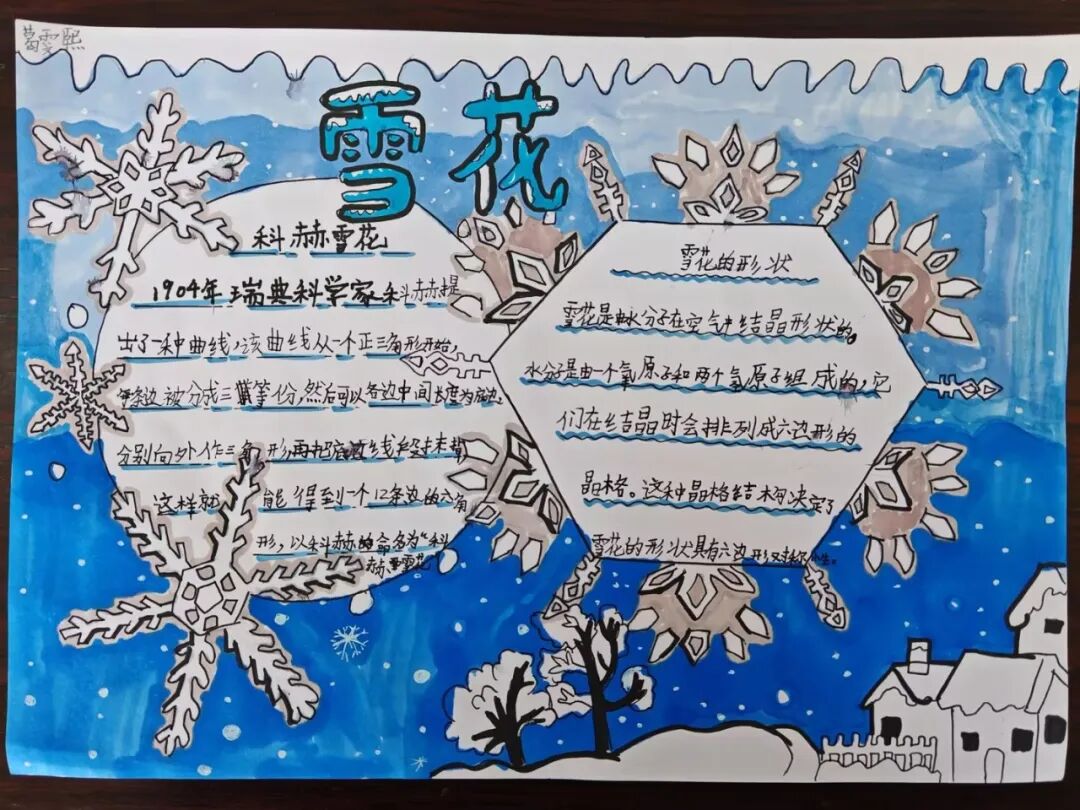 葛雯熙
雪花
科赫雪花
1904年瑞典科学家科赫提
出了一种曲线,该曲线从一个正三角形开始,
条边被分成三等份,然后可以各边中间长度为底边,
分别向外作三角形,再把底边线段抹掉
这样就能得到一个12条边的六角
形,以科赫的命名为“科
赫雪花”
雪花的形状
雪花是由水分子在空气中结晶形状的。
水分子是由一个氧原子和两个氢原子组成的,它
们在结晶时会排列成六边形的
晶格。这种晶格结构决定了
雪花的形状具有六边形对称性。